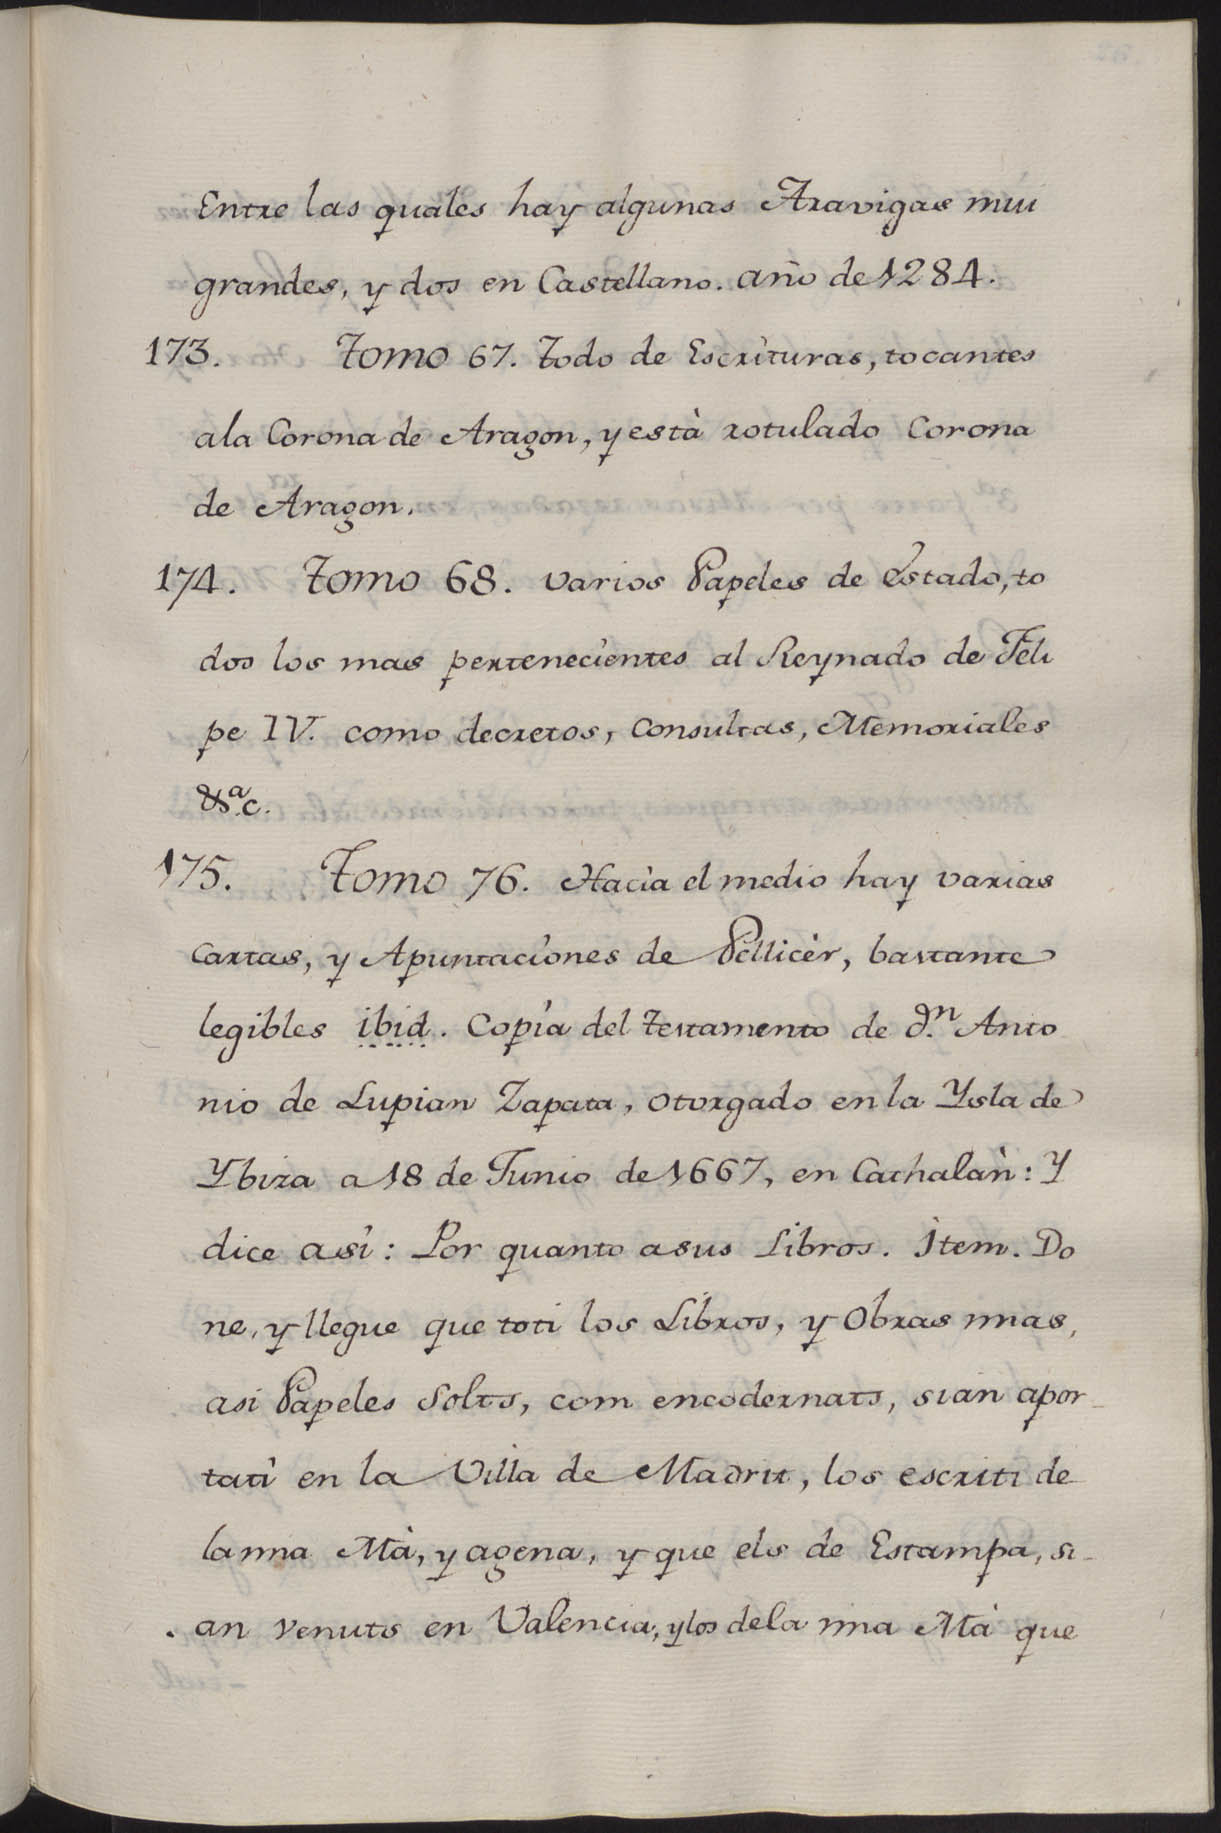 Entre las quales hay algunas Aravigas mui
grandes, y dos en Castellano. año de 1284.
173. Tomo 67. Todo de Escrituras, tocantes
ala Corona de Aragon, y està rotulado Corona
de Aragon.
174. Tomo 68. varios Papeles de Estado, to
dos los mas pertenecientes al Reynado de Feli
pe IV. como decretos, Consultas, Memoriales
&.ª c.
175. Tomo 76. Hacia el medio hay varias
cartas, y Apuntaciones de Pellicèr, bastante
legibles ibid. Copia del testamento de d.ⁿ Anto
nio de Lupian Zapata, otorgado en la Ysla de
Ybiza a 18 de Junio de 1667, en Cathalàn: Y
dice asì: Por quanto asus Libros. Item. Do
ne, y llegue que toti los Libros, y Obras mias,
asi Papeles Solts, com encodernats, sian apor-
tati en la Villa de Madrit, los escriti de
la mia Mà, y agena, y que els de Estampa, si-
an venuts en Valencia, y los dela mia Mà que